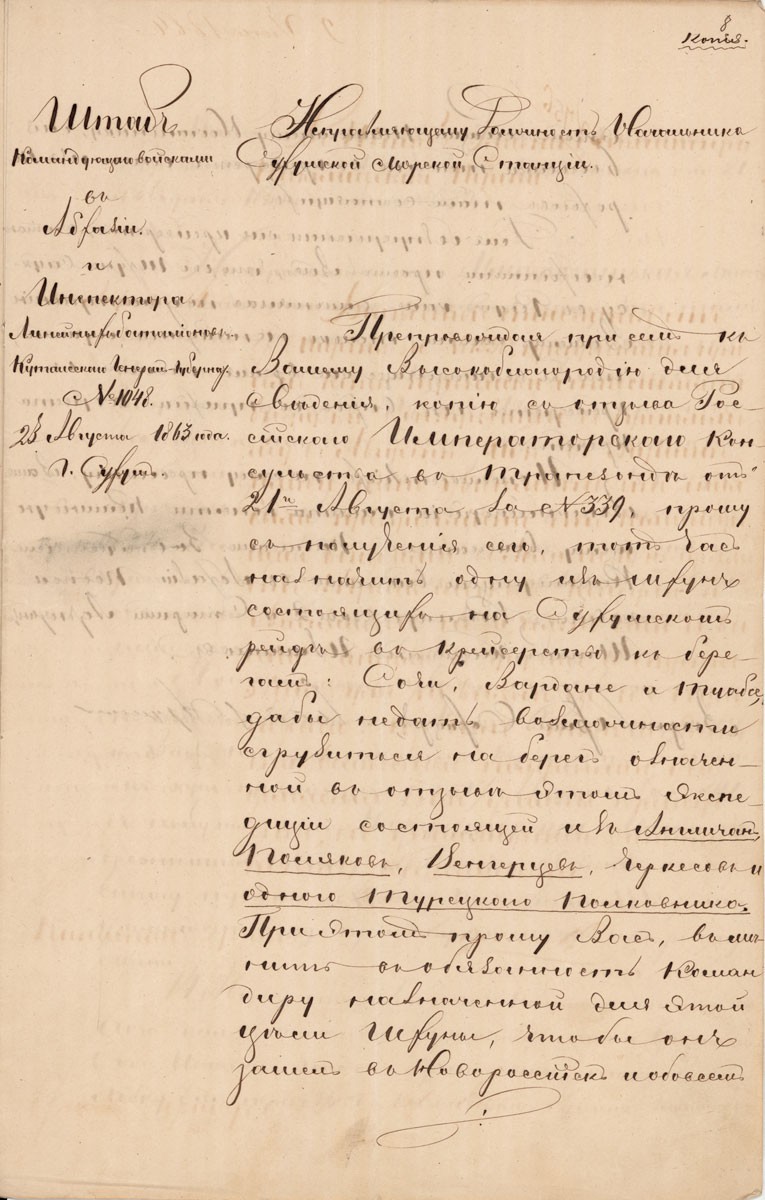 8
Копія.
Штабъ
Командующаго войсками
въ
Абхазіи.
и
Инспектора
Линейныхъ баталіоновъ
Кутаискаго Генералъ-Губерна.
№ 1048.
28 Августа 1863 года.
г. Сухумъ.
Исправляющему Должность Начальника
Сухумской Морской Станціи.
Препровождая при семъ къ
Вашему Высокоблагородію для
Свѣденія, копію съ отзыва Рос-
сійскаго Императорскаго Кон-
сульства въ Трапезондѣ отъ
21го Августа за №339, прошу
съ полученія сего, тотъ часъ
назначить одну изъ шхунъ
состоящихъ на Сухумскомъ
рейдѣ въ крейсерство къ бере-
гамъ: Сочи, Вардане и Туабсе,
дабы недать возможности
сгрузиться на берегъ означен-
ной въ отзывѣ этомъ экспе-
диціи состоящей изъ Англичанъ,
Поляковъ, Венгерцевъ, Черкесовъ и
одного Турецкого Полковника.
При этомъ прошу Васъ, вмѣ-
нить въ обязанность Коман-
диру назначенной для этой
цѣли Шхуны, чтобы онъ
зашелъ въ Новороссійскъ и обо всемъ